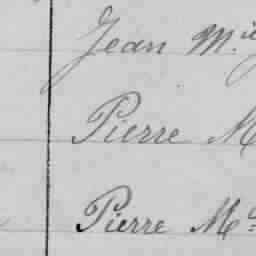 Jean M.ie
Pierre M
Pierre Mc